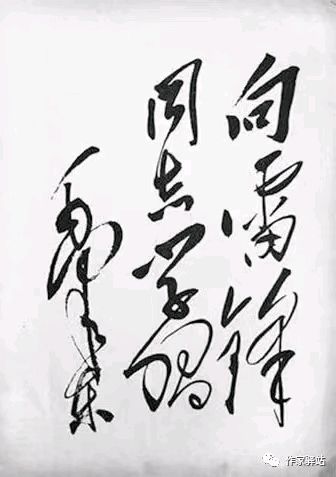 向雷锋
同志学习
毛泽东
作家驿站